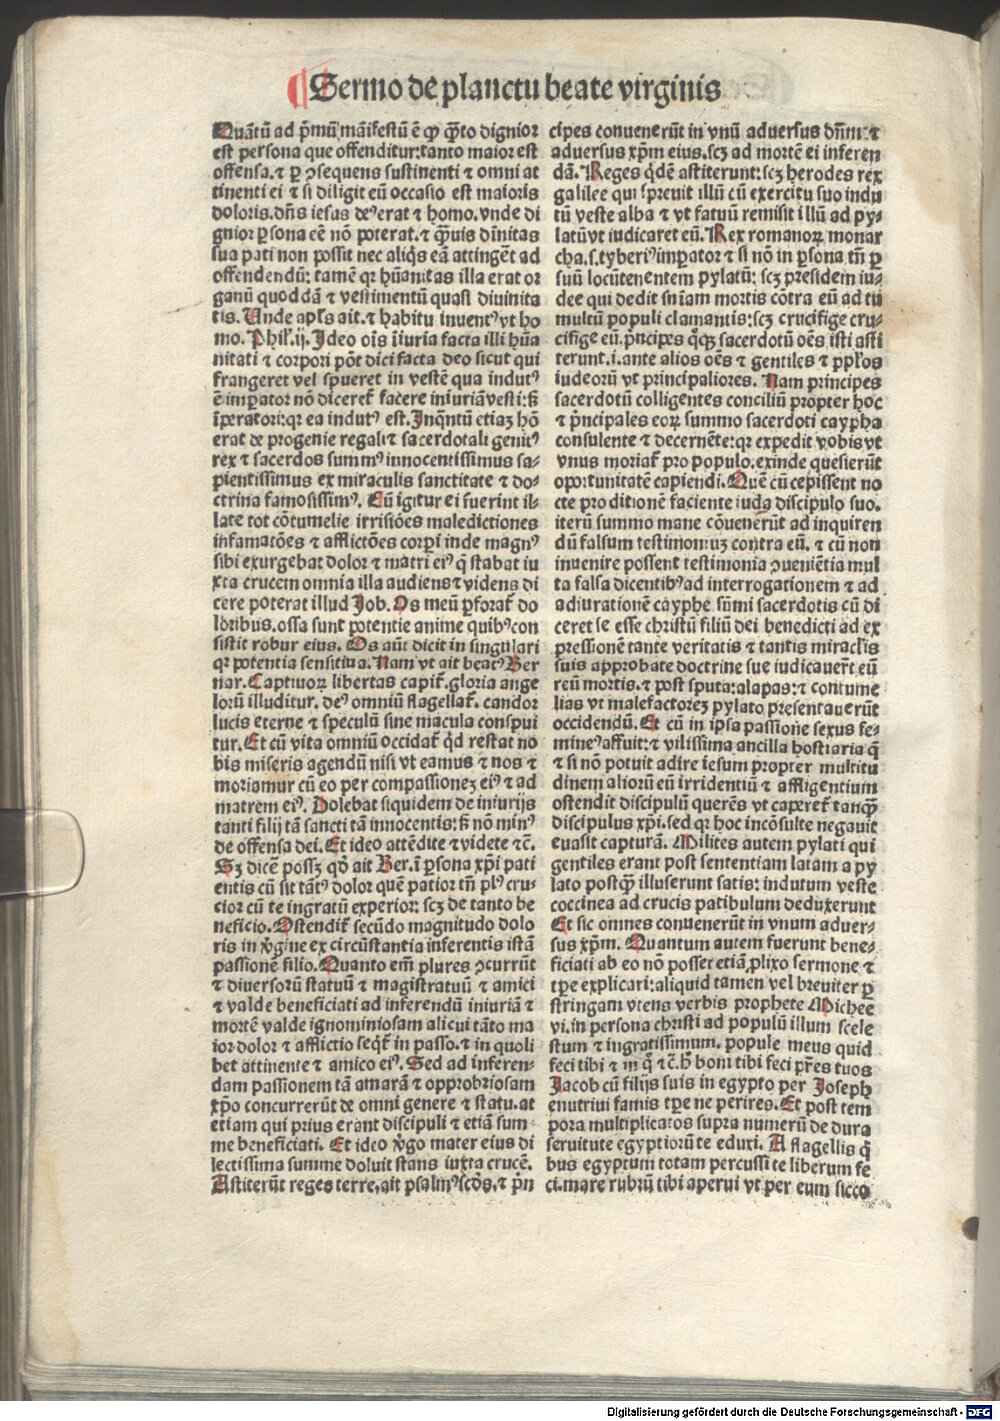 ¶ Sermo de planctu beate virginis
Quātū ad p̄mū māifestū ē ꝙ q̄ȝto dignior
est persona que offenditur: tanto maior est
offensa. ⁊ ꝑ ꝯsequens sustinenti ⁊ omni at
tinenti ei ⁊ si diligit eū occasio est maioris
doloris. dn̄s iesus deꝰ erat ⁊ homo. vnde di
gnior ꝑsona eē nō poterat. ⁊ q̄ȝuis diuītas
sua pati non possit nec aliqḋ eā attingēt ad
offendendū: tamē qr hūanitas illa erat or
ganū quoddā ⁊ vestimentū quasi diuinita
tis. Unde apl̄s ait. ⁊ habitu inuentꝰ vt ho
mo. Phil̄. ij. Ideo oīs iīuria facta illi hūa
nitati ⁊ corpori pōt dici facta deo sicut qui
frangeret vel spueret in vestē qua indutꝰ
ē imperator nō diceret̄ facere iniuriā vesti: sꝫ
īperatori: qr ea indutꝰ est. Inq̄ntū etiaȝ hō
erat de progenie regali ⁊ sacerdotali genitꝰ
rex ⁊ sacerdos summꝰ innocentissimus sa⸗
pientissimus ex miraculis sanctitate ⁊ do⸗
ctrina famosissimꝰ. Cū igitur ei fuerint il⸗
late tot cōtumelie irrisiōes maledictiones
infamatōes ⁊ afflictōes corpori inde magnꝰ
sibi exurgebat dolor ⁊ matri eiꝰ q̄ stabat iu
xta crucem omnia illa audiens ⁊ videns di
cere poterat illud Job. Os meū ꝑforat̄ do
loribus. ossa sunt potentie anime quibꝰ con
sistit robur eius. Os aūt dicit in singulari
qr potentia sensitiua. Nam vt ait beatꝰ Ber
nar. Captiuoꝝ libertas capit̄. gloria ange
lorū illuditur. deꝰ omniū flagellat̄. candor
lucis eterne ⁊ speculū sine macula conspui
tur. Et cū vita omniū occidat̄ qḋ restat no
bis miseris agendū nisi vt eamus ⁊ nos ⁊
moriamur cū eo per compassionez eiꝰ ⁊ ad
matrem eiꝰ. Dolebat siquidem de iniurijs
tanti filij tā sancti tā innocentis: sꝫ nō minꝰ
de offensa dei. Et ideo attēdite ⁊ videte ⁊c̄.
Sȝ dicē possȝ qḋ ait Ber. ī ꝑsona xp̄i pati
entis cū sit tātꝰ dolor quē patior tn̄ plꝰ cru⸗
cior cū te ingratū experior: scȝ de tanto be
neficio. Ostendit̄ secūdo magnitudo dolo
ris in v̄gine ex circūstantia inferentis istā
passionē filio. Quanto em̄ plures ꝯcurrūt
⁊ diuersorū statuū ⁊ magistratuū ⁊ amici
⁊ valde beneficiati ad inferendū iniuriā ⁊
mortē valde ignominiosam alicui tāto ma
ior dolor ⁊ afflictio seqt̄ in passo. ⁊ in quoli
bet attinente ⁊ amico eiꝰ. Sed ad inferen⸗
dam passionem tā amarā ⁊ opprobriosam
xp̄o concurrerūt de omni genere ⁊ statu. at
etiam qui prius erant discipuli ⁊ etiā sum⸗
me beneficiati. Et ideo v̄go mater eius di
lectissima summe doluit stans iuxta crucē.
Astiterūt reges terre, ait psalmꝰ scḋs. ⁊ p̄n
cipes conuenerūt in vnū aduersus dn̄m: ⁊
aduersus xp̄m eius. scȝ ad mortē ei inferen
dā. Reges qḋē astiterunt: scȝ herodes rex
galilee qui spreuit illū cū exercitu suo indu
tū veste alba ⁊ vt fatuū remisit illū ad py⸗
latū vt iudicaret eū. Rex romanoꝝ monar
cha. s. tyberiꝰ imperator ⁊ si nō in ꝑsona tn̄ ꝑ
suū locūtenentem pylatū: scȝ presidem iu⸗
dee qui dedit sn̄iam mortis cōtra eū ad tu
multū populi clamantis: scȝ crucifige cru⸗
cifige eū. p̄ncipes qꝫqȝ sacerdotū oēs. isti asti
terunt. i. ante alios oēs ⁊ gentiles ⁊ ppl̄os
iudeorū vt principaliores. Nam principes
sacerdotū colligentes conciliū propter hoc
⁊ p̄ncipales eoꝝ summo sacerdoti caypha
consulente ⁊ decernēte: qr expedit vobis vt
vnus moriat̄ pro populo. exinde quesierūt
oportunitatē capiendi. Quē cū cepissent no
cte proditionē faciente iuda discipulo suo.
iterū summo mane cōuenerūt ad inquiren
dū falsum testimoniuȝ contra eū. ⁊ cū non
inuenire possent testimonia ꝯuenīētia mul
ta falsa dicentibꝰ ad interrogationem ⁊ ad
adiurationē cayphe sūmi sacerdotis cū di
ceret se esse christū filiū dei benedicti ad ex
pressionē tante veritatis ⁊ tantis miracl̄is
suis approbate doctrine sue iudicauer̄t eū
reū mortis. ⁊ post sputa: alapas: ⁊ contume
lias vt malefactorez pylato presentauerūt
occidendū. Et cū in ipsa passiōne sexus fe⸗
mineꝰ affuit: ⁊ vilissima ancilla hostiaria q̄
⁊ si nō potuit adire iesum propter multitu
dinem aliorū eū irridentiū ⁊ affligentium
ostendit discipulū querēs vt caperet̄ tanq̄ȝ
discipulus xp̄i. sed qr hoc incōsulte negauit
euasit capturā. Milites autem pylati qui
gentiles erant post sententiam latam a py
lato postq̄ȝ illuserunt satis: indutum veste
coccinea ad crucis patibulum deduxerunt
Et sic omnes conuenerūt in vnum aduer⸗
sus xp̄m. Quantum autem fuerunt bene⸗
ficiati ab eo nō posset etiā ꝓlixo sermone ⁊
tp̄e explicari: aliquid tamen vel breuiter ꝑ
stringam vtens verbis prophete Michee
vi. in persona christi ad populū illum scele
stum ⁊ ingratissimum. popule meus quid
feci tibi ⁊ in q̄ ⁊c̄. h̄ boni tibi feci pr̄es tuos
Jacob cū filijs suis in egypto per Joseph
enutriui famis tp̄e ne perires. Et post tem
pora multiplicatos supra numerū de dura
seruitute egyptiorū te eduxi. A flagellis q̄
bus egyptum totam percussi te liberum fe
ci. mare rubrū tibi aperui vt per eum sicco
Digitalisierung gefördert durch die Deutsche Forschungsgemeinschaft - DFG